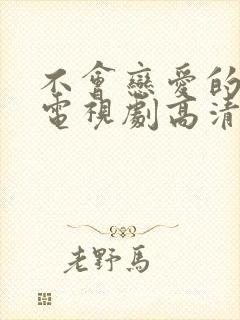 不會戀愛的
電視劇高清
老野馬